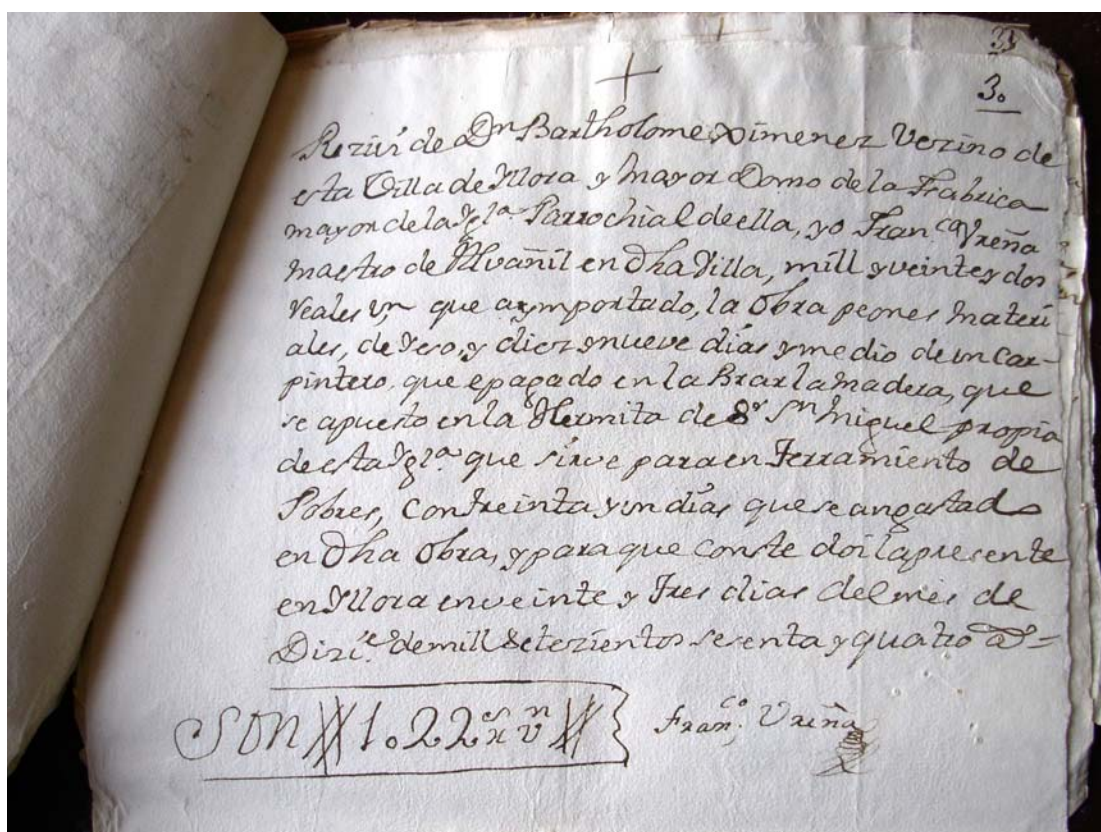 33
30
Reziví de Dn Bartholome Ximenez Vezino de
esta Villa de Yllora y mayor Domo de la Frabrica
mayor de la Ygla. Parrochial de ella, yo Franco Vreña
maestro de Alvañil en Dha Villa, mill y veinte y dos
reales vn que aymportado, la Obra peones materi
ales, de Yeso, y diez y nueve días y medio de un car-
pintero, que epagado en la Brar la madera, que
se apuesto en la Hermita de Sr Sn Miguel propia
de esta Ygla. que sirve para en Terramiento de
Pobres, Con treinta y un días que se an gastado
en Dha Obra, y para que Conste doi la presente
en Yllora en veinte y Tres dias del mes de
Dizie. de mill setezientos sesenta y quatro as=
SON 1.022 rs vn
Franco. Vreña